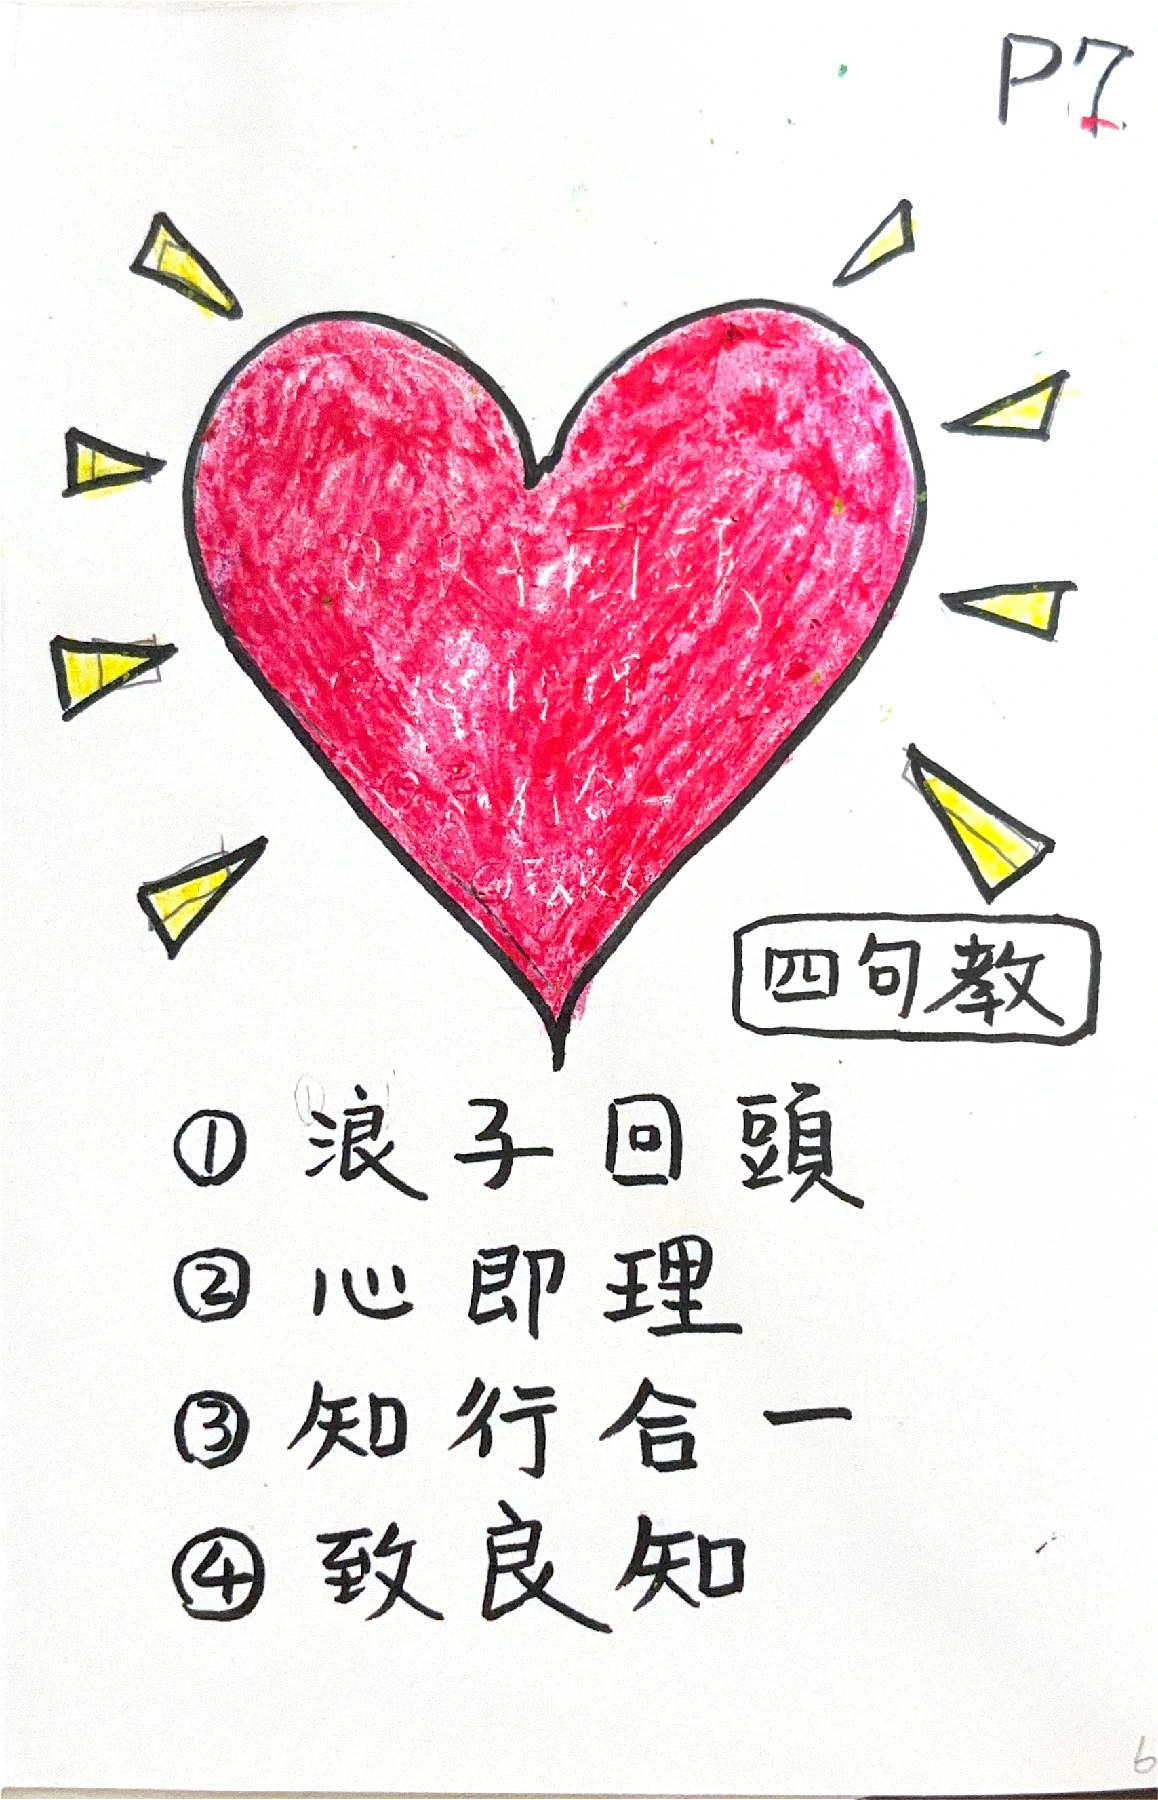 P7
四句教
① 浪子回頭
② 心即理
③ 知行合一
④ 致良知
6